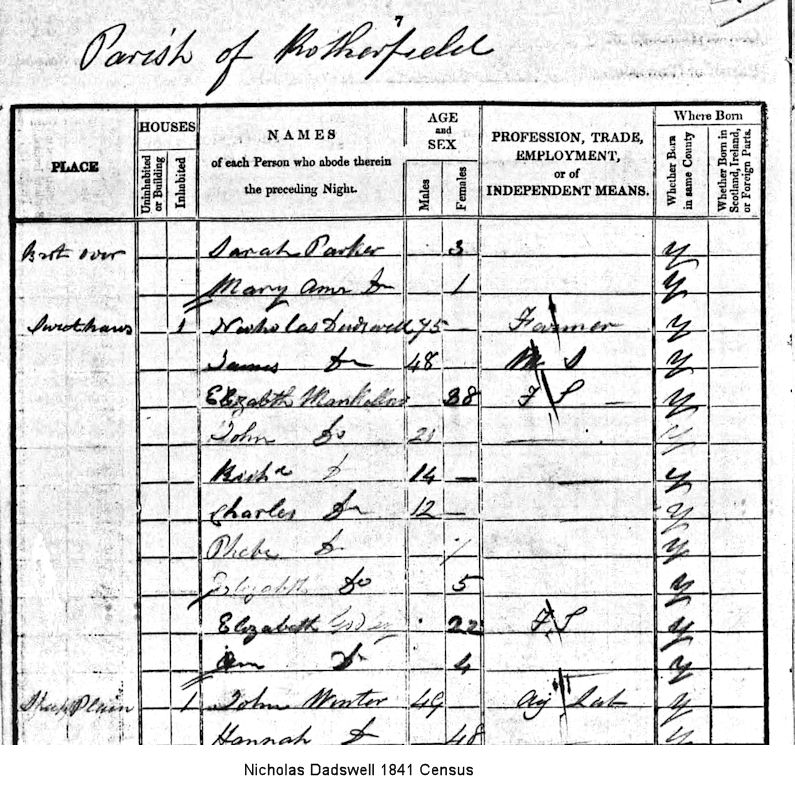 7
Parish of Rotherfield
PLACE HOUSES Uninhabited or Building Inhabited NAMES of each Person who abode therein the preceding Night. AGE and SEX Males Females PROFESSION, TRADE, EMPLOYMENT, or of INDEPENDENT MEANS. Where Born Whether Born in same County Whether Born in Scotland, Ireland, or Foreign Parts.
Brot over Sarah Parker 3 y
Mary Ann Do 1 y
Sweethaws 1 Nicholas Dadswell 75 — Farmer y
James Do 48 M S y
Elizabeth 38 F S y
John Do 21 y
14 — y
Charles Do 12 — y
Phebe Do y
Elizabeth Do 5 y
Elizabeth 22 F S y
Ann Do 4 y
Plain 1 John Winter 49 Ag Lab y
Hannah Do 48 y
Nicholas Dadswell 1841 Census